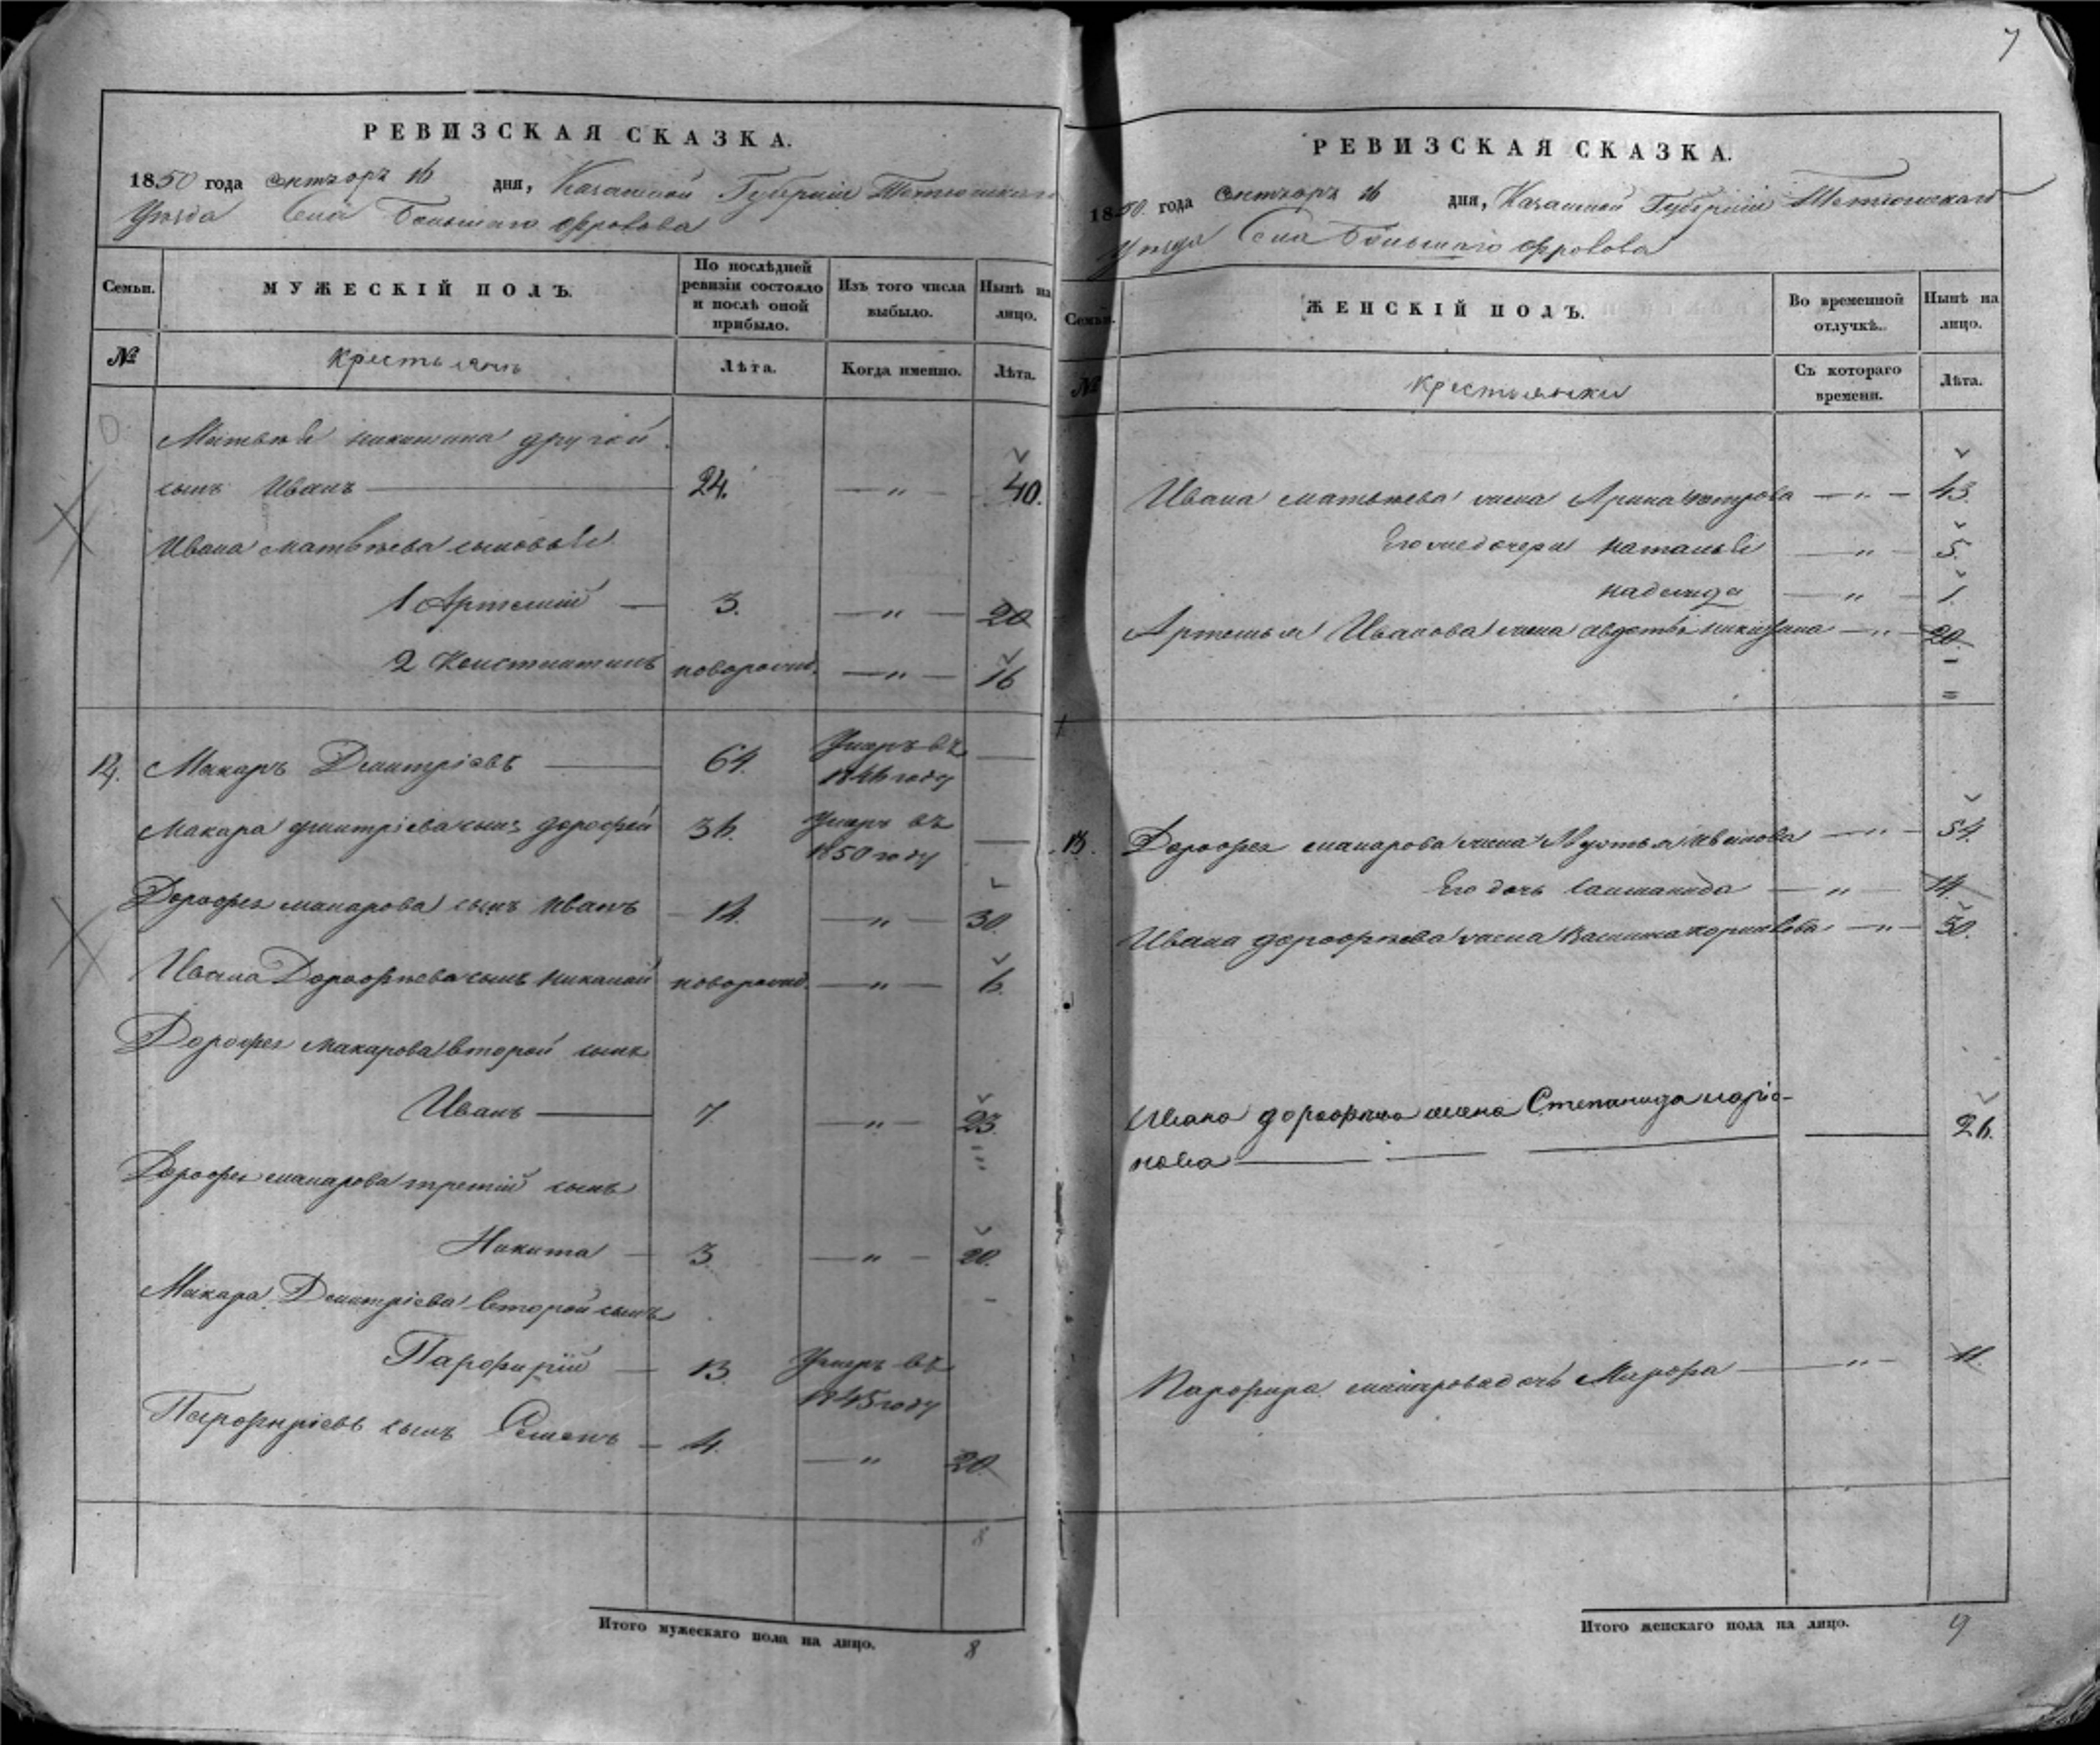 7
РЕВИЗСКАЯ СКАЗКА.
1850 года Октября 16 дня, Казанской Губерніи Тетюшскаго
Уѣзда Села Большаго Фролова
Семьи.
МУЖЕСКІЙ ПОЛЪ.
По послѣдней ревизіи состояло и послѣ оной прибыло.
Изъ того числа выбыло.
Нынѣ на лицо.
№
Крестьянъ
Лѣта.
Когда именно.
Лѣта.
Матвѣя Никитина другой
сынъ Иванъ 24. — " — 40.
Ивана Матвѣева сыновья
1 Артемій — 3. — " — 20
2 Констинтинъ новорожд. — " — 16
12. Макаръ Дмитріевъ 64. Умеръ въ 1846 году —
Макара Дмитріева сынъ Дорофей 36. Умеръ въ 1850 году —
Дорофея Макарова сынъ Иванъ 14. — " — 30.
Ивана Дорофѣева сынъ Николай новорожд. — " — 6.
Дорофея Макарова второй сынъ
Иванъ 7. — " — 23.
Дорофея Макарова третій сынъ
Никита — 3. — " — 20.
Макара Дмитріева второй сынъ
Парфирій — 13. Умеръ въ 1845 году
Парфиріевъ сынъ Семенъ — 4. — " — 20.
8
Итого мужескаго пола на лицо. 8
РЕВИЗСКАЯ СКАЗКА.
1850. года Октября 16 дня, Казанской Губерніи Тетюшскаго
Уѣзда Села Большаго Фролова
Семьи.
ЖЕНСКІЙ ПОЛЪ.
Во временной отлучкѣ.
Нынѣ на лицо.
№
Крестьянки
Съ котораго времени.
Лѣта.
Ивана Матвѣева жена Арина Петрова — " — 43.
Его же дочери Наталья — " — 5.
Надежда — " — 1.
Артемья Иванова жена Авдотья Никитина — " — 20.
13. Дорофея Макарова жена Авдотья Иванова — " — 54.
Его дочь — " — 14.
Ивана Дорофѣева жена — " — 30.
Ивана Дорофѣева жена Степанида Ларіо-
нова 26.
Парфира Макарова дочь Марфа — " — 11.
Итого женскаго пола на лицо. 9